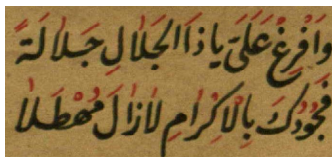 وَاَفْرِغْ عَلَىَّ يَا ذَا الْجَلَالِ جَلَالَةً
فَجُودُكَ بِالْاِكْرَامِ لَازَالَ مُهْطَلَا